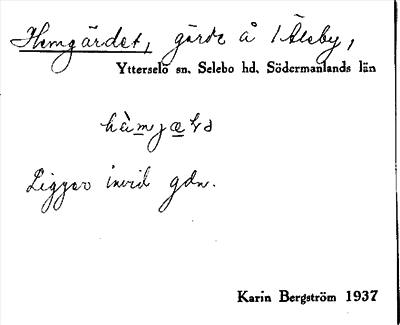 Hemgärdet, gärde å 1 Älby,
Ytterselö sn. Selebo hd. Södermanlands län
Ligger invid gdn.
Karin Bergström 1937